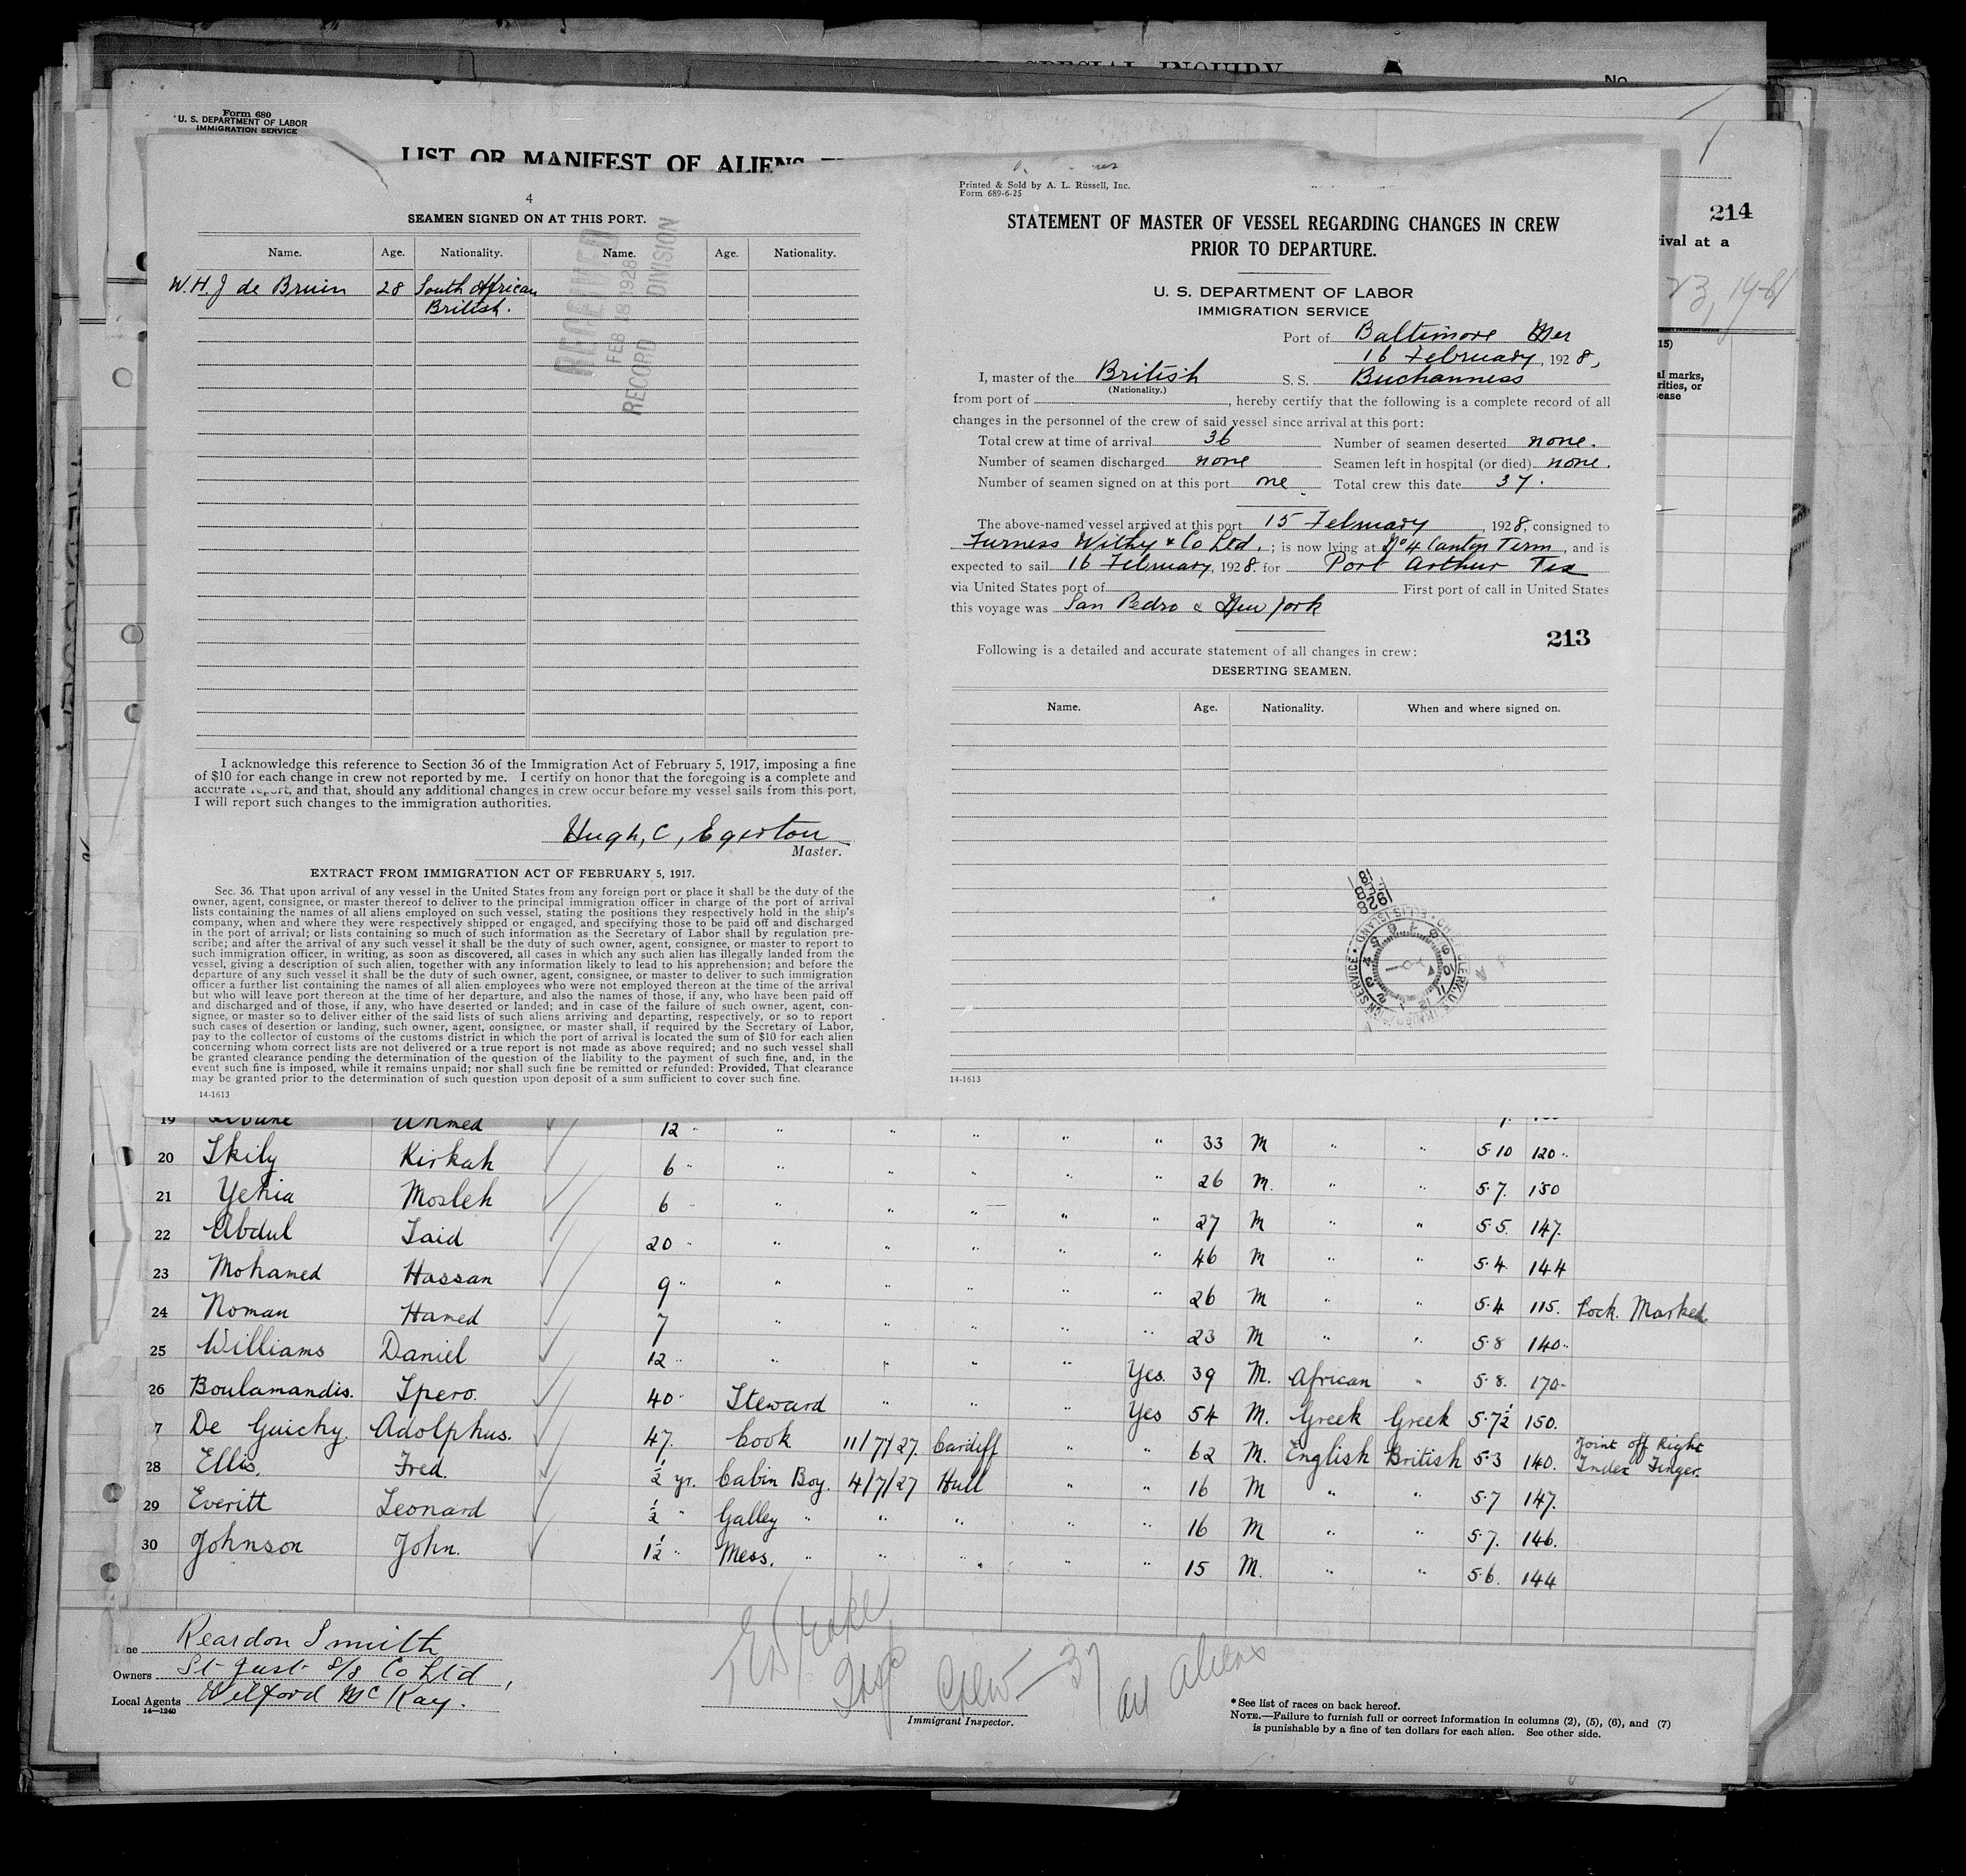 FOR SPECIAL INQUIRY
No.
Form 680
U. S. DEPARTMENT OF LABOR
IMMIGRATION SERVICE
LIST OR MANIFEST OF ALIENS
214
ival at a
15)
al marks,
rities, or
sease
4
SEAMEN SIGNED ON AT THIS PORT.
Name. Age. Nationality. Name. Age. Nationality.
W. H. J de Bruin 28 South African
British.
RECEIVED
FEB 18 1928
RECORD DIVISION
I acknowledge this reference to Section 36 of the Immigration Act of February 5, 1917, imposing a fine
of $10 for each change in crew not reported by me. I certify on honor that the foregoing is a complete and
accurate report, and that, should any additional changes in crew occur before my vessel sails from this port,
I will report such changes to the immigration authorities.
Hugh, C, Egerton
Master.
EXTRACT FROM IMMIGRATION ACT OF FEBRUARY 5, 1917.
Sec. 36. That upon arrival of any vessel in the United States from any foreign port or place it shall be the duty of the
owner, agent, consignee, or master thereof to deliver to the principal immigration officer in charge of the port of arrival
lists containing the names of all aliens employed on such vessel, stating the positions they respectively hold in the ship's
company, when and where they were respectively shipped or engaged, and specifying those to be paid off and discharged
in the port of arrival; or lists containing so much of such information as the Secretary of Labor shall by regulation pre-
scribe; and after the arrival of any such vessel it shall be the duty of such owner, agent, consignee, or master to report to
such immigration officer, in writing, as soon as discovered, all cases in which any such alien has illegally landed from the
vessel, giving a description of such alien, together with any information likely to lead to his apprehension; and before the
departure of any such vessel it shall be the duty of such owner, agent, consignee, or master to deliver to such immigration
officer a further list containing the names of all alien employees who were not employed thereon at the time of the arrival
but who will leave port thereon at the time of her departure, and also the names of those, if any, who have been paid off
and discharged and of those, if any, who have deserted or landed; and in case of the failure of such owner, agent, con-
signee, or master so to deliver either of the said lists of such aliens arriving and departing, respectively, or so to report
such cases of desertion or landing, such owner, agent, consignee, or master shall, if required by the Secretary of Labor,
pay to the collector of customs of the customs district in which the port of arrival is located the sum of $10 for each alien
concerning whom correct lists are not delivered or a true report is not made as above required; and no such vessel shall
be granted clearance pending the determination of the question of the liability to the payment of such fine, and, in the
event such fine is imposed, while it remains unpaid; nor shall such fine be remitted or refunded: Provided, That clearance
may be granted prior to the determination of such question upon deposit of a sum sufficient to cover such fine.
14-1613
Printed & Sold by A. L. Russell, Inc.
Form 689-6-25
STATEMENT OF MASTER OF VESSEL REGARDING CHANGES IN CREW
PRIOR TO DEPARTURE.
U. S. DEPARTMENT OF LABOR
IMMIGRATION SERVICE
Port of Baltimore
16 February, 1928,
I, master of the British S. S. Buchanness
(Nationality.)
from port of , hereby certify that the following is a complete record of all
changes in the personnel of the crew of said vessel since arrival at this port:
Total crew at time of arrival 36 Number of seamen deserted none.
Number of seamen discharged none Seamen left in hospital (or died) none.
Number of seamen signed on at this port one Total crew this date 37.
The above-named vessel arrived at this port 15 February, 1928, consigned to
Furness Withy & Co Ltd. ; is now lying at No 4 Canton Term, and is
expected to sail 16 February, 1928. for Port Arthur Tex
via United States port of First port of call in United States
this voyage was San Pedro & New York
213
Following is a detailed and accurate statement of all changes in crew:
DESERTING SEAMEN.
Name. Age. Nationality. When and where signed on.
14-1613
19 Ahmed 12 " " " " " " 33 M " "
20 Skily Kirkah 6 " " " " " " 26 M. " " 5·10 120 "
21 Yehia Mosleh 6 " " " " " 27 M " " 5·7. 150
22 Abdul Said 20 " " " " " " 46 M " " 5·5. 147.
23 Mohamed Hassan 9 " " " " " " 26 M " " 5·4. 144
24 Noman Hamed 7 " " " " " 23 M " " 5·4 115. Pock. Marked.
25 Williams Daniel 12 " " " " " Yes. 39 M. African " 5·8 140 "
26 Boulamandis. Spero. 40 " Steward " " " Yes 54 M. Greek Greek 5·8. 170
7 De Guichy. Adolphus. 47. Cook 11/7/27. Cardiff " " 62 M. English British 5·7½ 150.
28 Ellis, Fred. ½ yr. Cabin Boy. 4/7/27 Hull " " 16 M " " 5·3 140. Joint off Right Index Finger.
29 Everitt Leonard ½ " Galley " " " " " 16 M " " 5·7 147.
30 Johnson John. 1½ " Mess. " " " " " 15 M. " " 5·7. 146.
5·6. 144
Line Reardon Smith
Owners St Just S/S Co Ltd,
Local Agents Wilford Mc Kay.
14—1240
Insp Crew – 37
all aliens
Immigrant Inspector.
*See list of races on back hereof.
NOTE.—Failure to furnish full or correct information in columns (2), (5), (6), and (7)
is punishable by a fine of ten dollars for each alien. See other side.